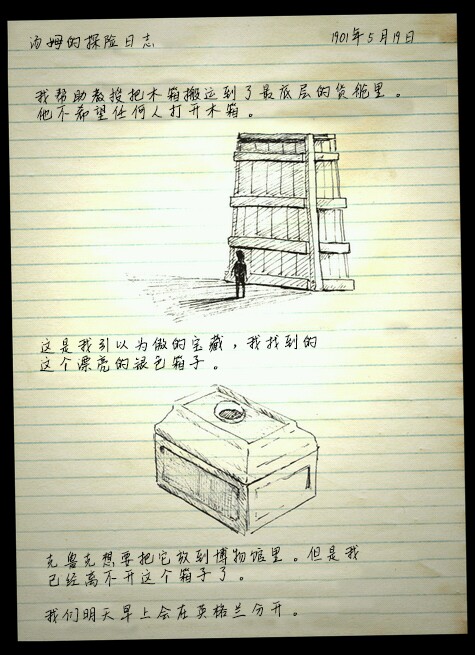 汤姆的探险日志
1901年5月19日
我帮助教授把木箱搬运到了最底层的货舱里。
他不希望任何人打开木箱。
这是我引以为傲的宝藏，我找到的
这个漂亮的银色箱子。
克鲁克想要把它放到博物馆里。但是我
已经离不开这个箱子了。
我们明天早上会在英格兰分开。